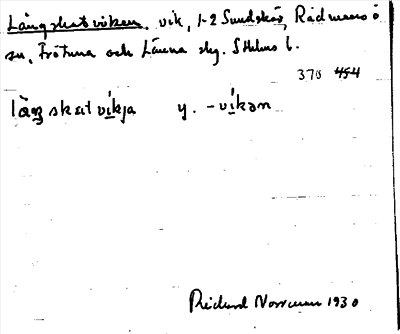 Långskatviken. vik, 1-2 Sundskär, Rådmansö
sn, Frötuna och Länna slg. Sthlms l.
370 454
làŋskatvíkja y. -víkən
Rickard Norrman 1930